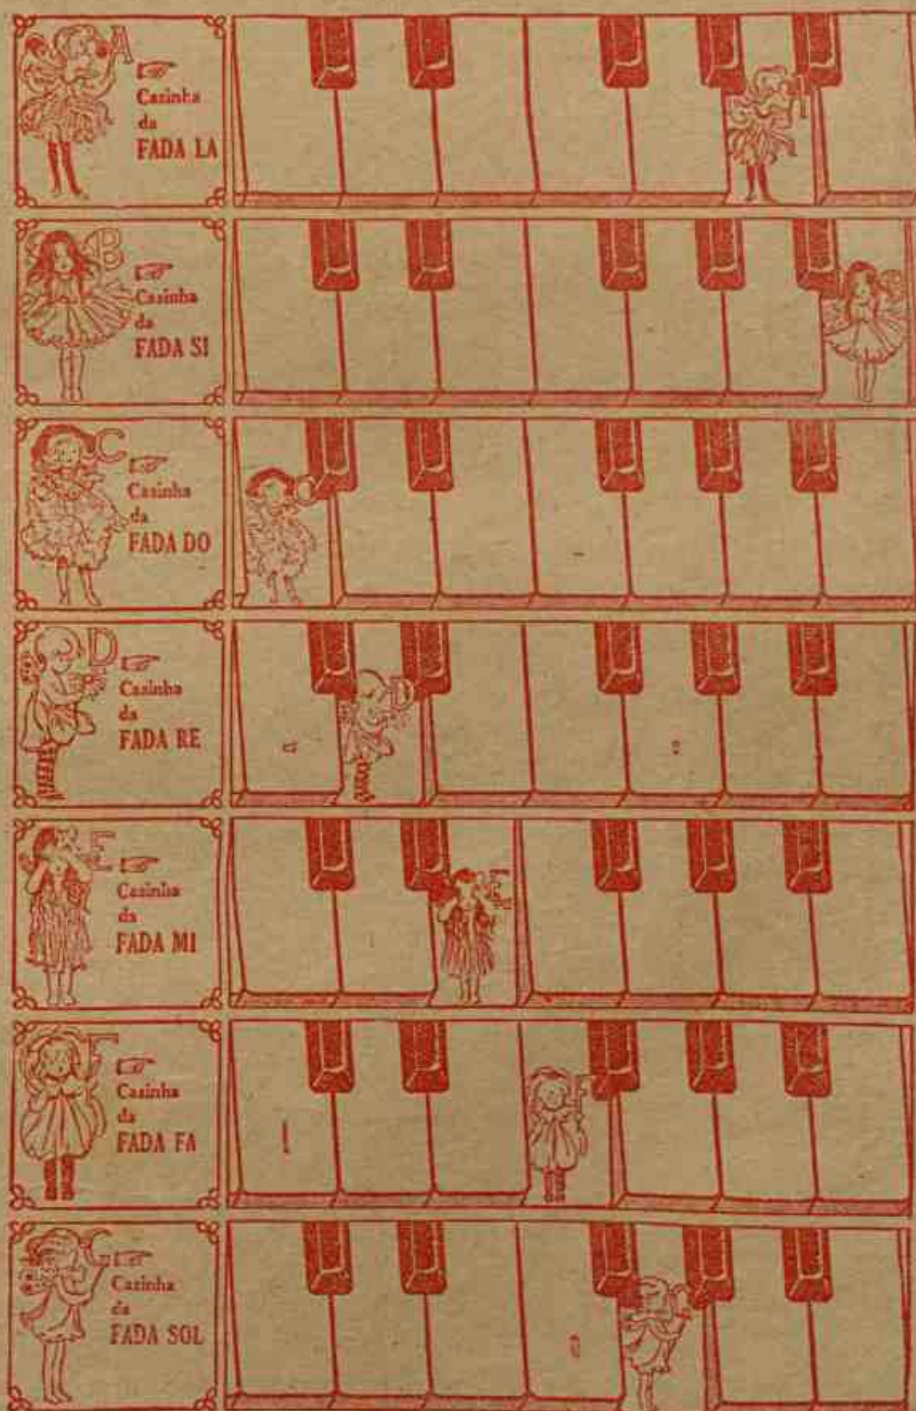 A
Casinha
da
FADA LA
B
Casinha
da
FADA SI
C
Casinha
da
FADA DO
D
Casinha
da
FADA RE
E
Casinha
da
FADA MI
F
Casinha
da
FADA FA
G
Casinha
da
FADA SOL